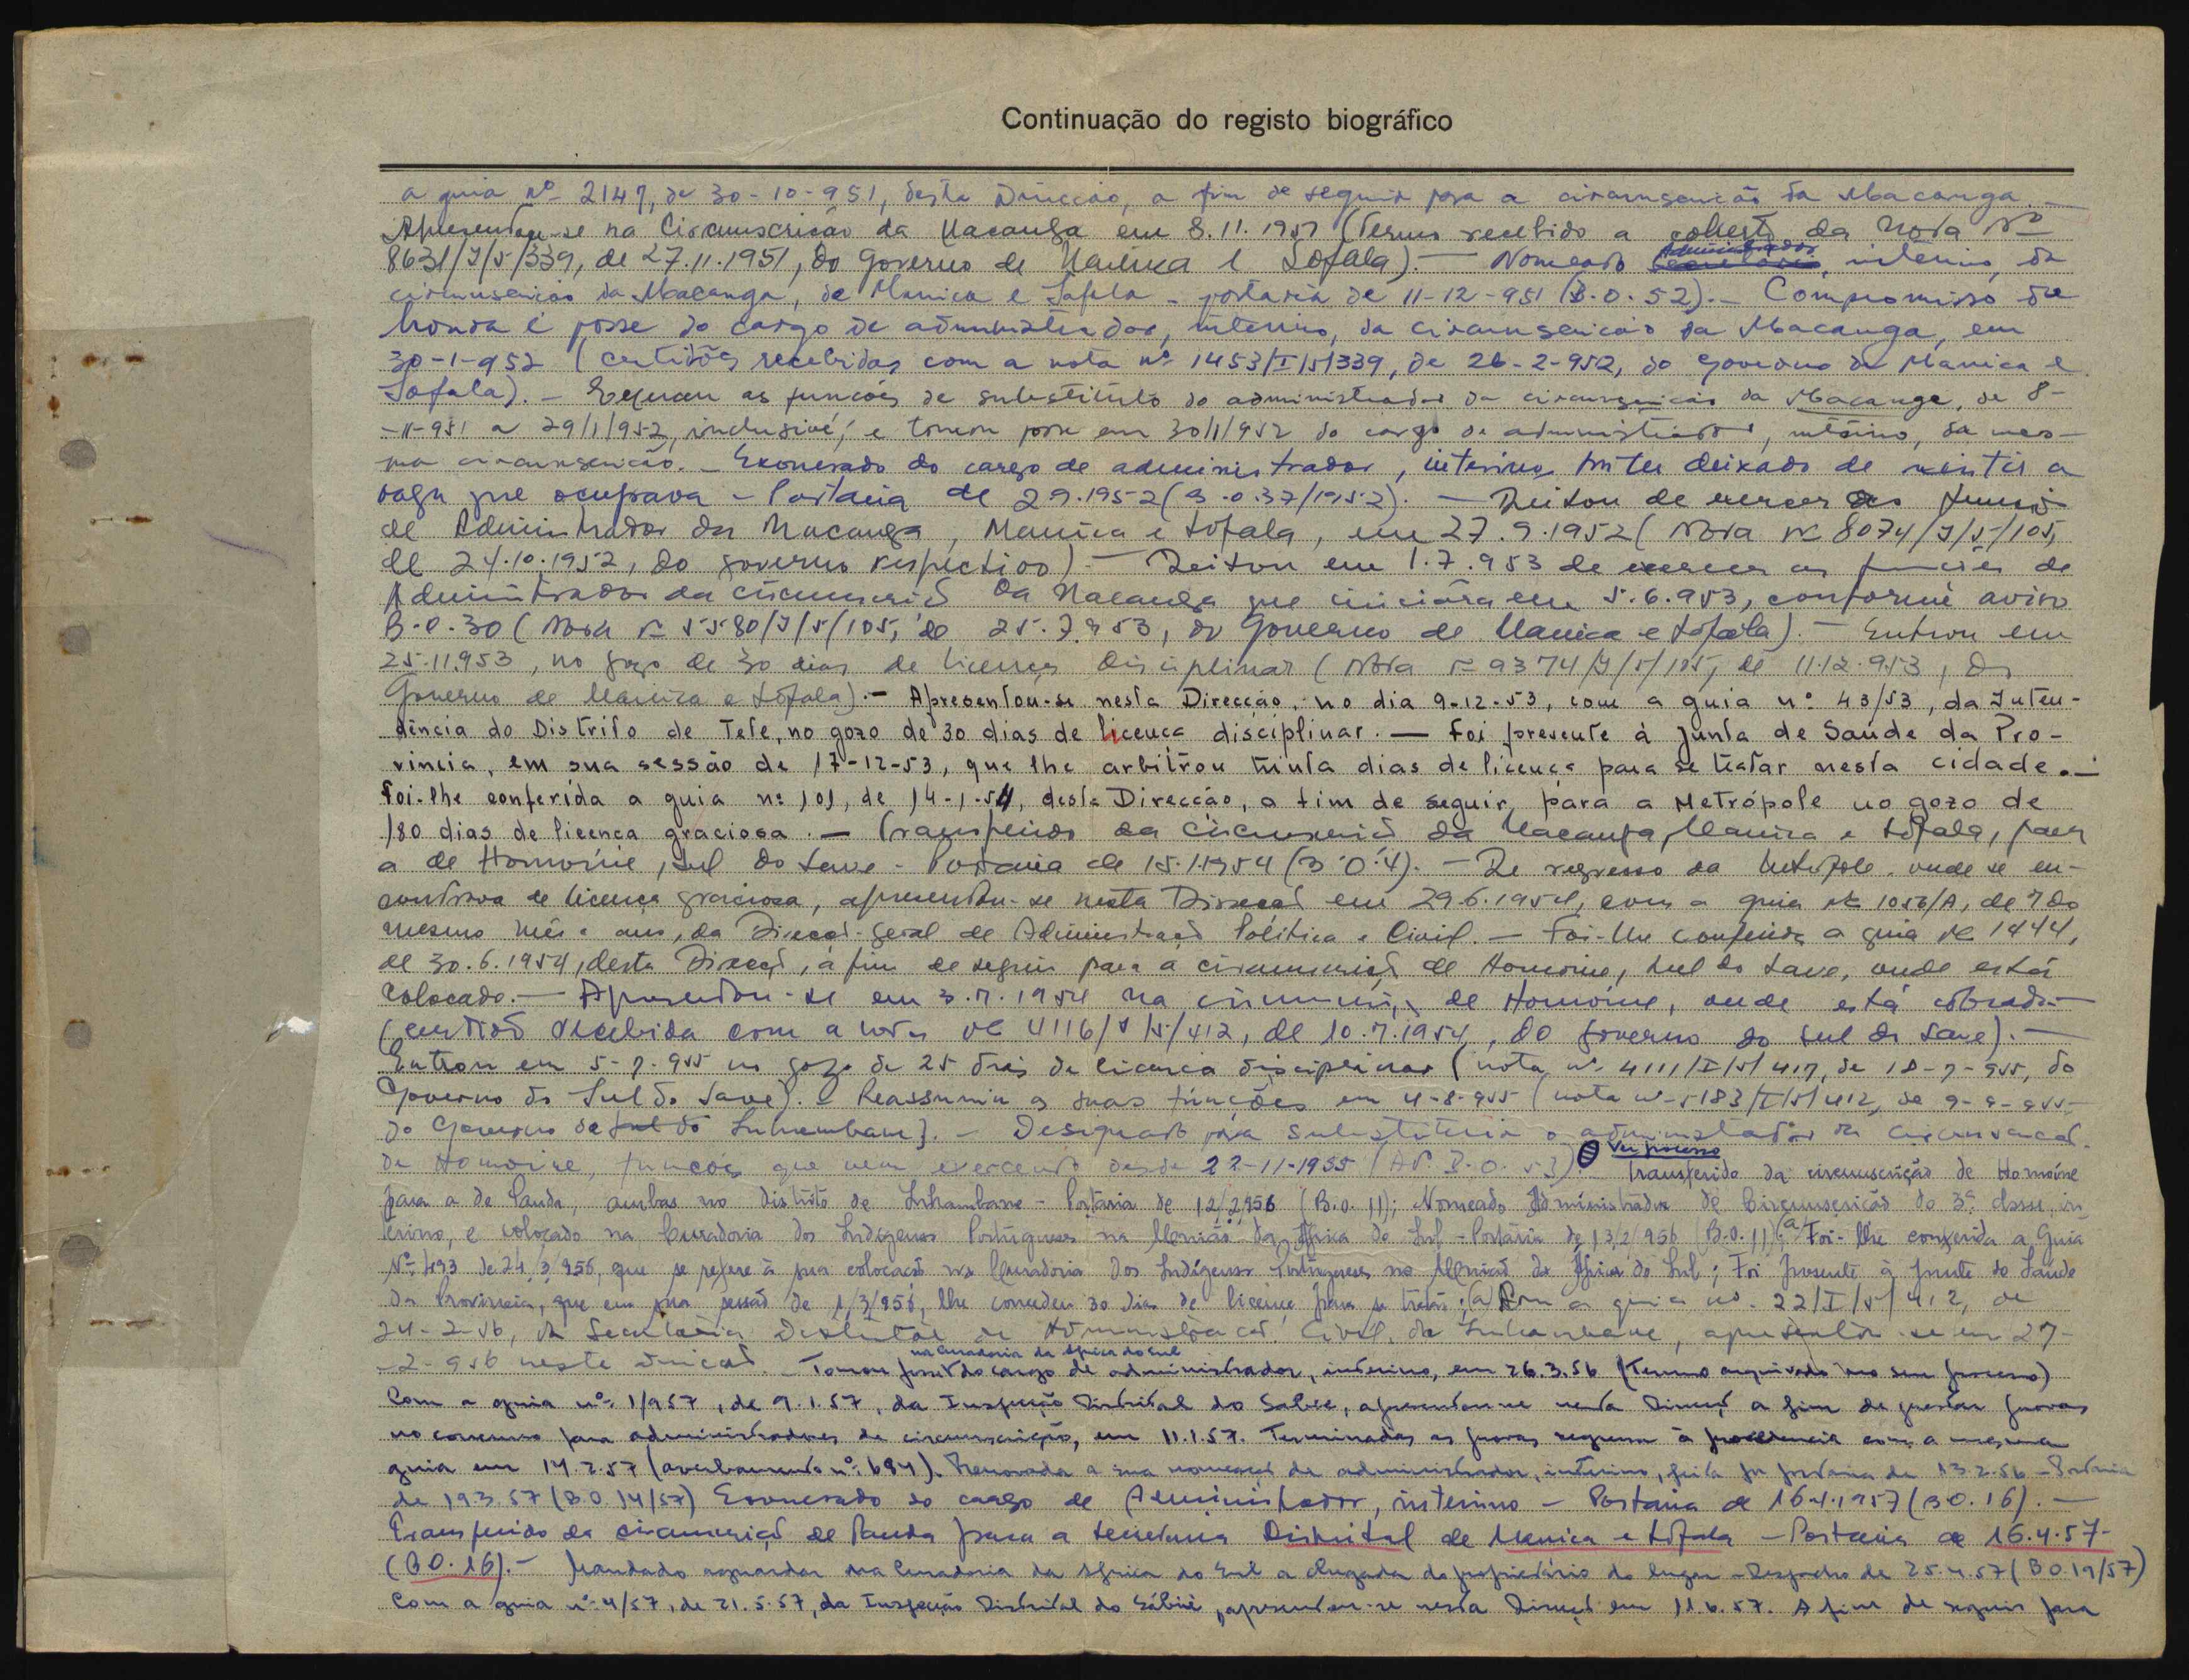 Continuação do registo biográfico
a guia nº 2147, de 30-10-951, desta Direcção, a fim de seguir para a circunscrição da Macanga. —
Apresentou-se na Circunscrição da Macanga em 8.11.1951 (Termo recebido a coberto da Nota Nº
8631/I/5/339, de 27.11.1951, do Governo de Manica e Sofala). — Nomeado Administrador, interino, da
circunscrição da Macanga, de Manica e Sofala - portaria de 11-12-951 (B.O. 52). — Compromisso de
honra e posse do cargo de administrador, interino, da circunscrição da Macanga, em
30-1-952 (certidões recebidas com a nota nº 1453/I/5/339, de 26-2-952, do Governo de Manica e
Sofala). — Exerceu as funções de substituto do administrador da circunscrição da Macanga, de 8-
-11-951 a 29/1/952, inclusivé, e tomou posse em 30/1/952 do cargo de administrador, interino, da mes-
ma circunscrição. — Exonerado do cargo de administrador, interino, por ter deixado de existir a
vaga que ocupava - Portaria de 2.9.1952 (B.O. 37/1952). — Deixou de exercer as funções
de Administrador da Macanga, Manica e Sofala, em 27.9.1952 (Nota Nº 8074/I/5/105,
de 24.10.1952, do governo respectivo) — Deixou em 1.7.953 de exercer as funções de
Administrador da circunscrição da Macanga que iniciára em 5.6.953, conforme aviso
B.O. 30 (Nota nº 5580/I/5/105, de 25.7.953, do Governo de Manica e Sofala). — Entrou em
25.11.953, no gozo de 30 dias de licença disciplinar (Nota nº 9374/I/5/105, de 11.12.953, do
Governo de Manica e Sofala). — Apresentou-se nesta Direcção, no dia 9-12-53, com a guia nº 43/53, da Inten-
dência do Distrito de Tete, no gozo de 30 dias de licença disciplinar. — Foi presente à Junta de Saúde da Pro-
vincia, em sua sessão de 17-12-53, que lhe arbitrou trinta dias de licença para se tratar nesta cidade. —
Foi-lhe conferida a guia nº 101, de 14-1-54, desta Direcção, a fim de seguir para a Metrópole no gozo de
180 dias de licença graciosa. — Transferido da circunscrição da Macanga, Manica e Sofala, para
a de Homoíne, Sul do Save - Portaria de 15.1.1954 (B.O. 4). — De regresso da Metrópole, onde se en-
contrava de licença graciosa, apresentou-se nesta Direcção em 29.6.1954, com a guia nº 1056/A, de 7 do
mesmo mês e ano, da Direcção-Geral de Administração Política e Civil. — Foi-lhe conferida a guia nº 1444,
de 30.6.1954, desta Direcção, a fim de seguir para a circunscrição de Homoíne, Sul do Save, onde está
colocado. — Apresentou-se em 3.7.1954 na circunscrição de Homoíne, onde está colocado
(certidão recebida com a nota nº 4116/I/5/412, de 10.7.1954, do Governo do Sul do Save). —
Entrou em 5-7-955 no gozo de 25 dias de licença disciplinar (nota nº 4111/I/5/417, de 18-7-955, do
Governo do Sul do Save). — Reassumiu as suas funções em 4-8-955 (nota nº 5183/I/5/412, de 9-8-955
do Governo de Inhambane). — Designado para substituir o administrador da circunscrição
de Homoíne, funções que vem exercendo desde 22-11-1955 (B.O. 53). Ver processo Transferido da circunscrição de Homoíne
para a de Panda, ambas no distrito de Inhambane - Portaria de 12/2/956 (B.O. 11); Nomeado Administrador de Circunscrição de 3ª classe, in-
terino, e colocado na Curadoria dos Indígenas Portugueses na União da Africa do Sul - Portaria de 13/2/956 (B.O. 11) (a) Foi-lhe conferida a Guia
Nº 493 de 24/3/956, que se refere à sua colocação na Curadoria dos Indígenas Portugueses na União da Africa do Sul; Foi presente à Junta de Saúde
da Província, que em sua sessão de 1/3/956, lhe concedeu 30 dias de licença para se tratar; (a) Com a guia nº 22/I/5/412, de
24-2-56, da Secretaria Distrital de Administração Civil de Inhambane, apresentou-se em 27-
-2-956 nesta Direcção. — Tomou posse na Curadoria da Africa do Sul do cargo de administrador, interino, em 26.3.56 (Termo arquivado no seu processo)
Com a guia nº 1/957, de 9.1.57, da Inspecção Distrital do Sabié, apresentou-se nesta Direcção a fim de prestar provas
no concurso para administradores de circunscrição, em 11.1.57. Terminadas as provas regressa à procedencia com a mesma
guia em 14.2.57 (averbamento nº 684). Renovada a sua nomeação de administrador, interino, feita por portaria de 13.2.56 - Portaria
de 19.3.57 (B.O. 14/57) Exonerado do cargo de Administrador, interino - Portaria de 16.4.1957 (B.O. 16). —
Transferido da circunscrição de Panda para a secretaria Distrital de Manica e Sofala - Portaria de 16.4.57-
(B.O. 16). — Mandado aguardar na Curadoria da Africa do Sul a chegada do proprietário do lugar - Despacho de 25.4.57 (B.O. 19/57)
Com a guia nº 4/57, de 21.5.57, da Inspecção Distrital do Sábié, apresentou-se nesta Direcção em 11.6.57. A fim de seguir para